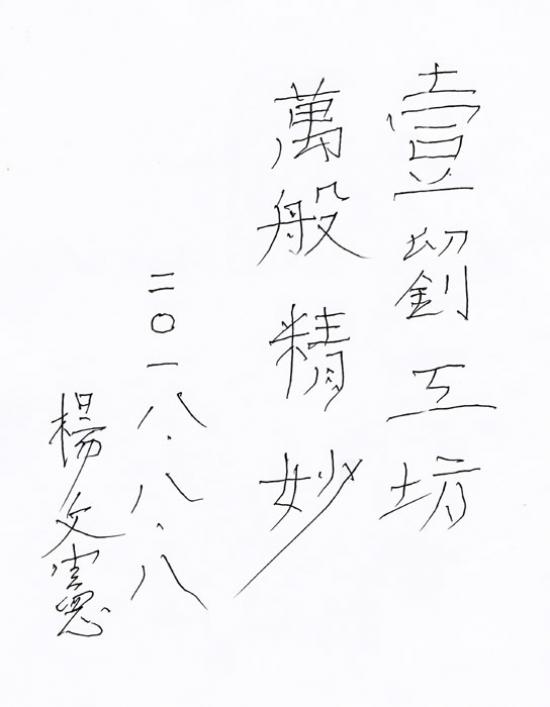 壹 工坊
萬般精妙
二〇一八.八.八
楊文憲